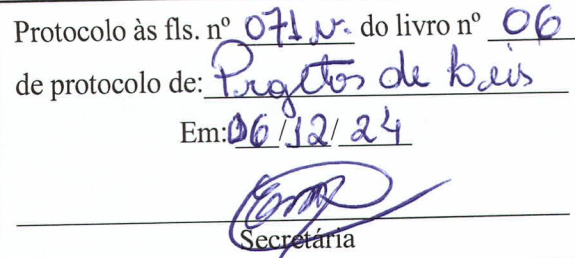 Protocolo às fls. nº 071 v. do livro nº 06
de protocolo de: Projetos de Leis
Em: 06/12/24
Secretária